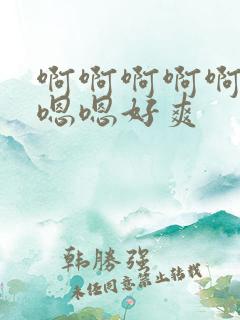 啊啊啊啊啊
嗯嗯好爽
韩勝强
未经同意禁止转载